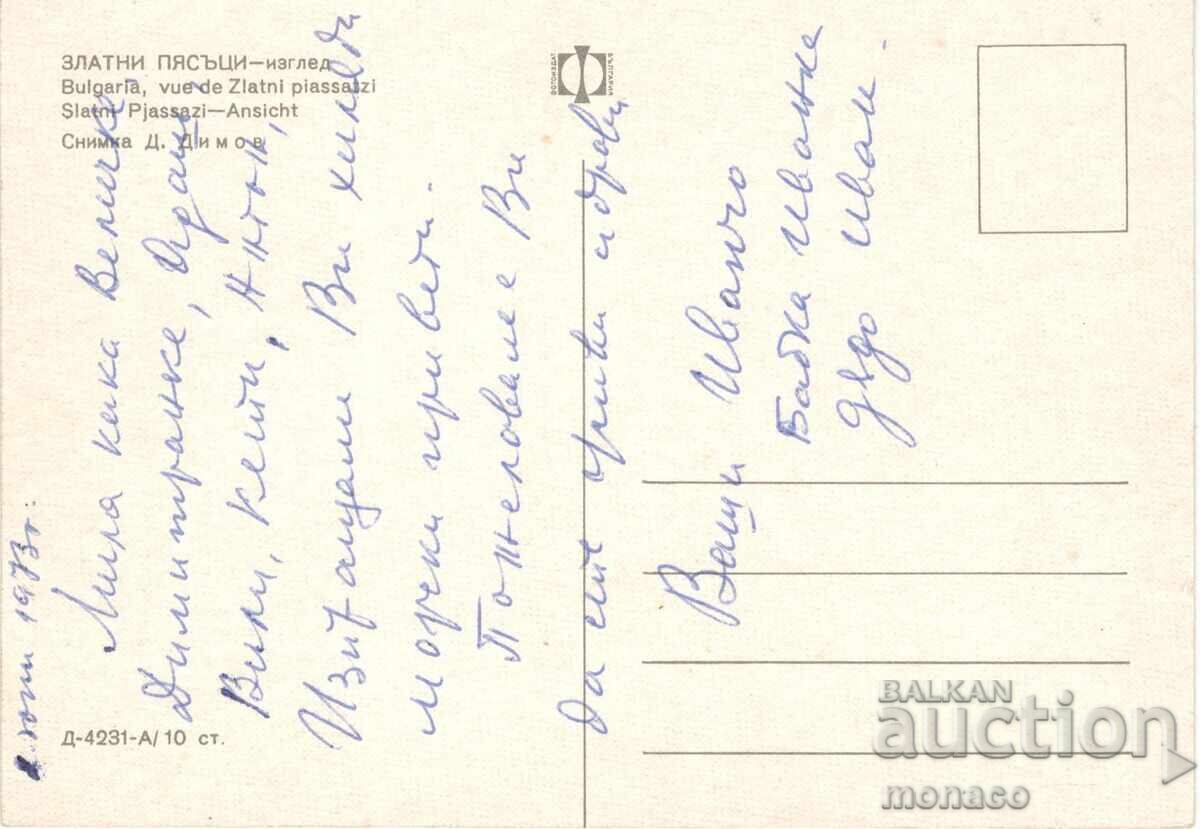 ЗЛАТНИ ПЯСЪЦИ—изглед
Bulgaria, vue de Zlatni piassatzi
Slatni Pjassazi—Ansicht
Снимка Д. Димов
ФОТОИЗДАТ
БЪЛГАРИЯ
юли 1973г.
Мила кака Величко
Димитранке,
Вили, Кети,
Изпращам Ви хиляди
морски привети.
Пожеловаме Ви
да сте живи и здрави
Ваши Иванчо
Бабка Иванка
дядо Иван.
Д-4231-А/10 ст.
BALKAN
auction
monaco